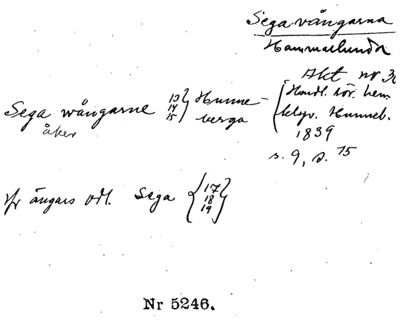 Sega vångarna
Hammarlunda
Akt nr 3
Sega wångarne 13 14 15 } Hunneberga { Handl. rör. hem klyv. Hunneb.
åker
1839
s. 9, s. 15
ängars odl. Sega { 17 18 19 }
Nr 5246.